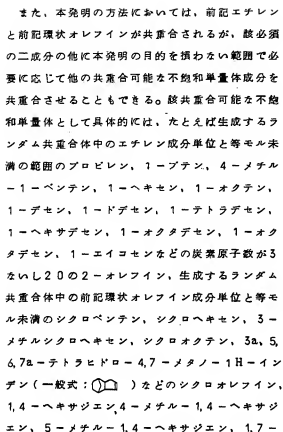 また、本発明の方法においては、前記エチレン
と前記環状オレフインが共重合されるが、該必須
の二成分の他に本発明の目的を損わない範囲で必
要に応じて他の共重合可能な不飽和単量体成分を
共重合させることもできる。該共重合可能な不飽
和単量体として具体的には、たとえば生成するラ
ンダム共重合体中のエチレン成分単位と等モル未
満の範囲のプロピレン、1-ブテン、4-メチル
-1-ペンテン、1-ヘキセン、1-オクテン、
1-デセン、1-ドデセン、1-テトラデセン、
1-ヘキサデセン、1-オクタデセン、1-オク
タデセン、1-エイコセンなどの炭素原子数が3
ないし20の2-オレフイン、生成するランダム
共重合体中の前記環状オレフイン成分単位と等モ
ル未満のシクロペンテン、シクロヘキセン、3-
メチルシクロヘキセン、シクロオクテン、3a,5,
6,7a-テトラヒドロ-4,7-メタノ-1H-イン
デン(一般式: )などのシクロオレフイン、
1,4-ヘキサジエン,4-メチル-1,4-ヘキサジ
エン、5-メチル-1,4-ヘキサジエン、1,7-